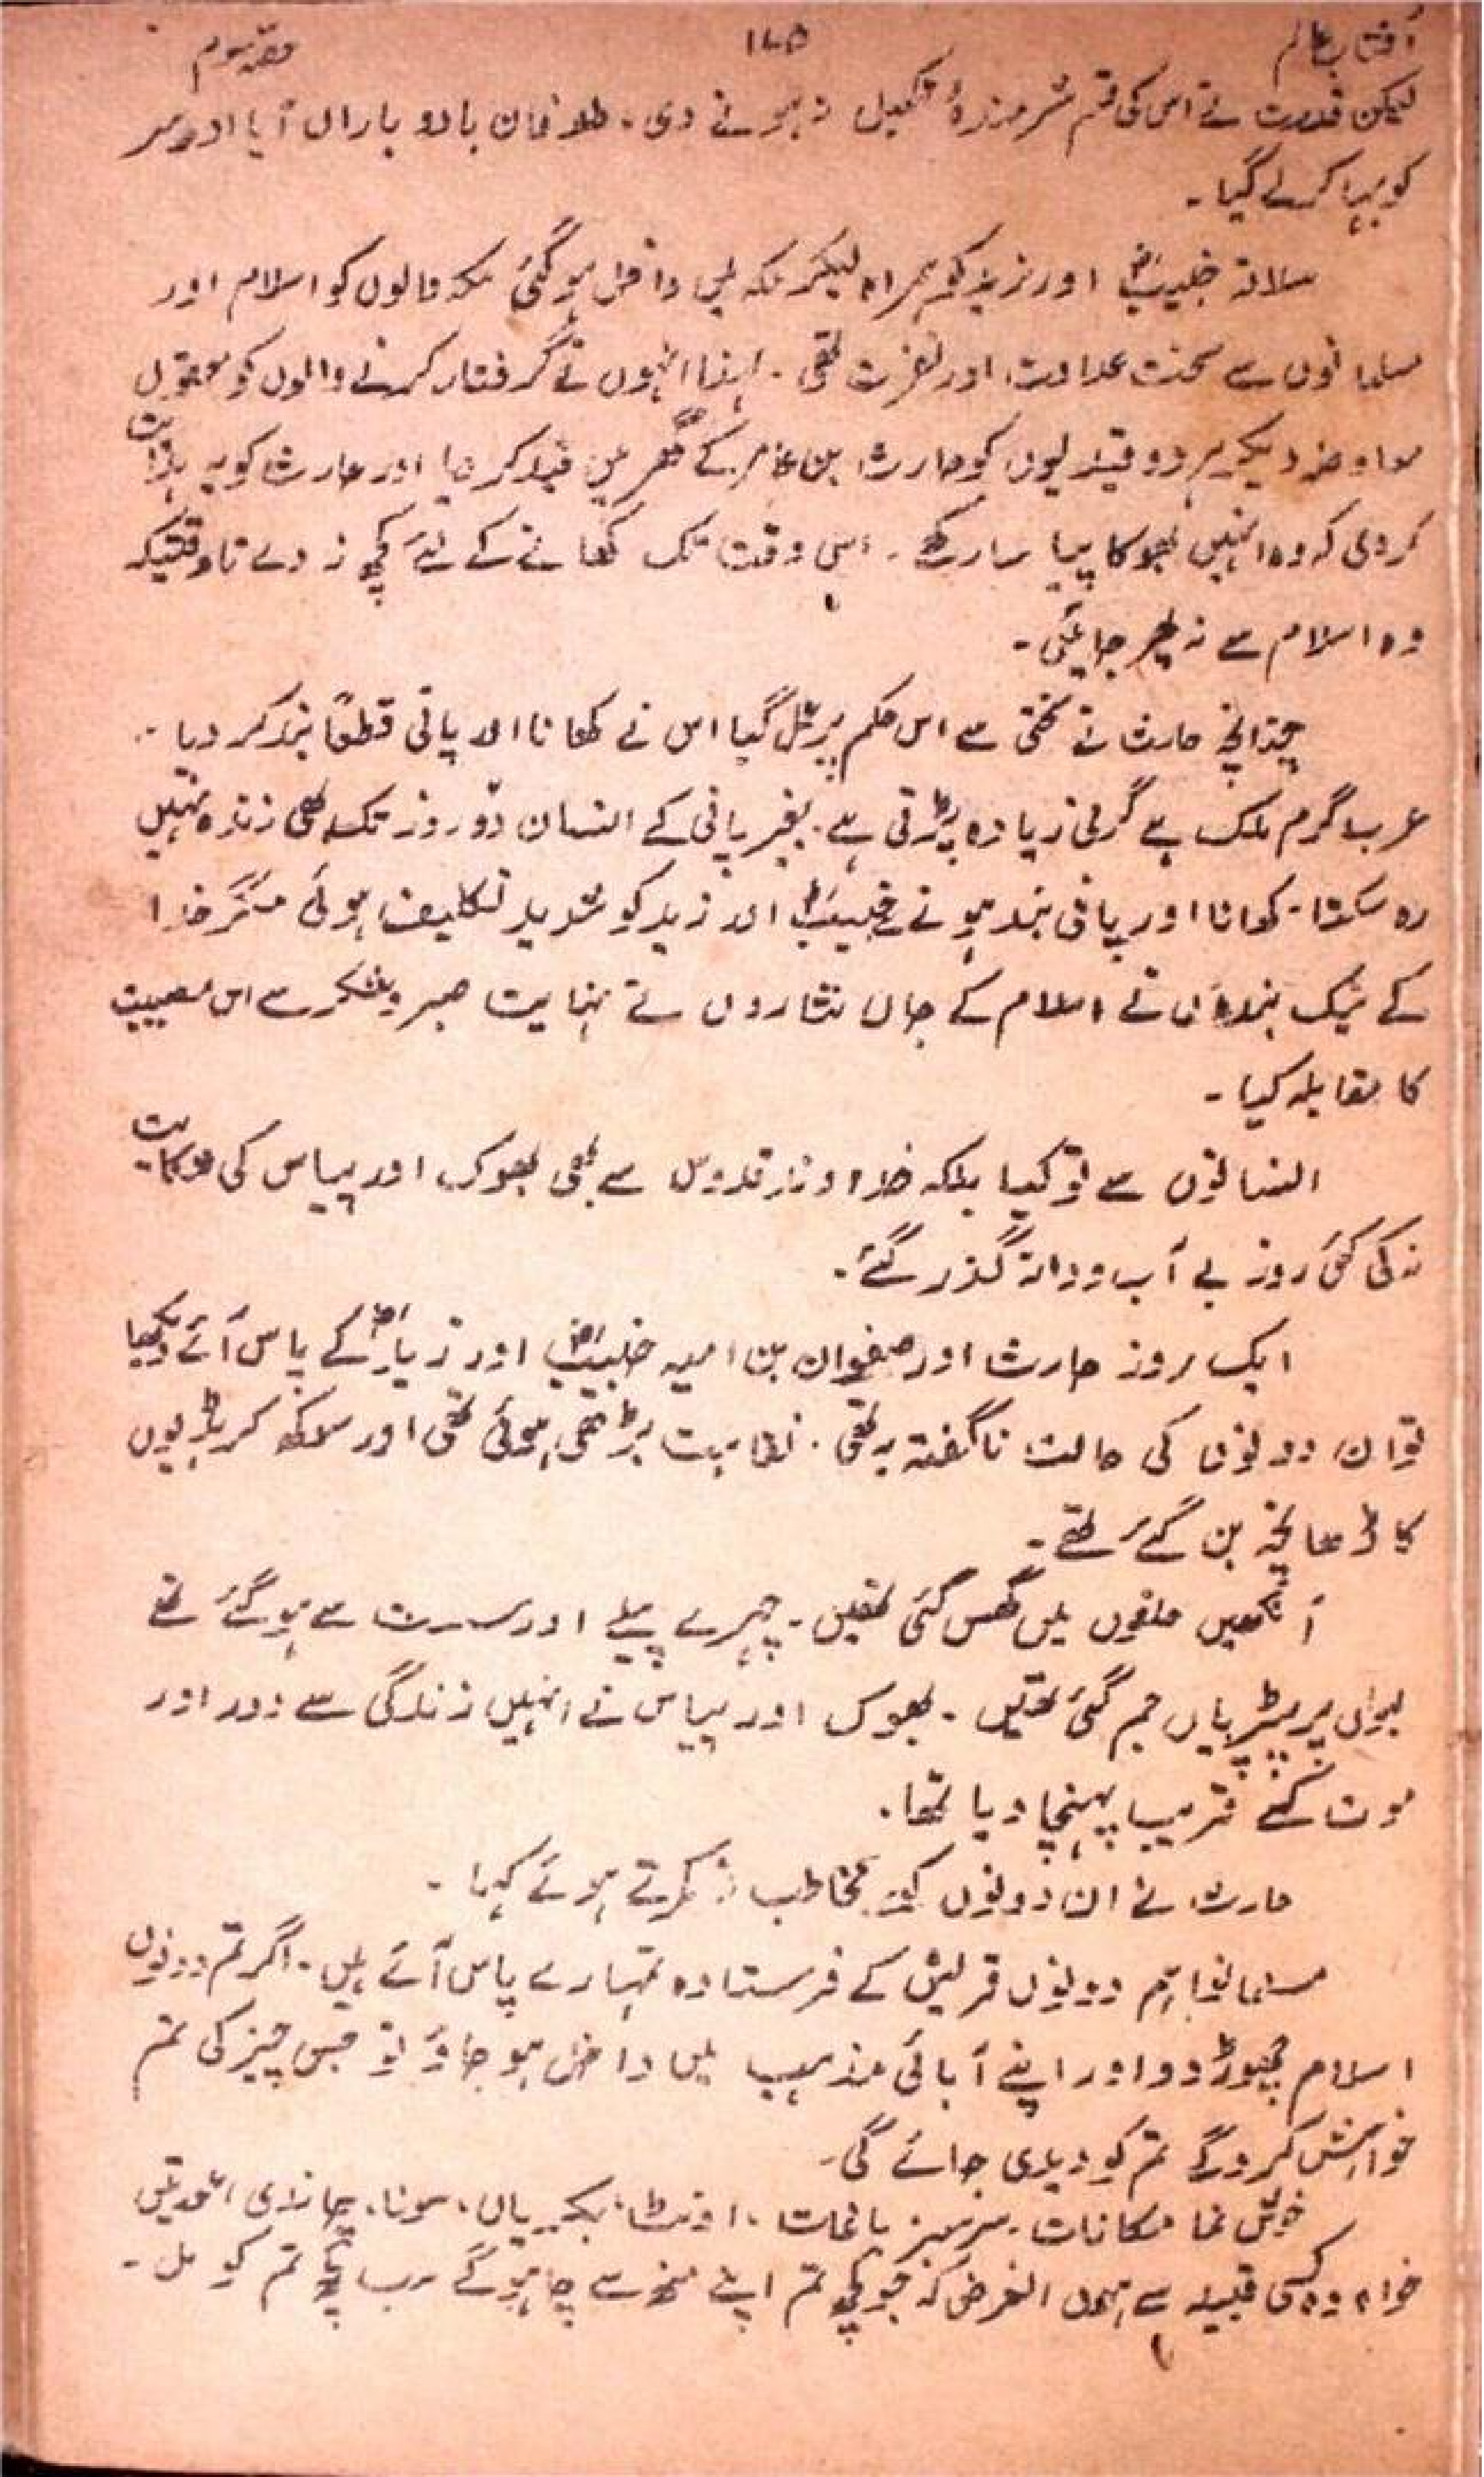 آفتاب عالم ۱۷۵ حصہ سوم
لیکن قدرت نے اس کی قسم شرمندۂ تکمیل نہ ہونے دی۔ طوفان بادو باراں آیا اور سر
کو بہا کر لے گیا۔
سلافہ خبیبؓ اور زید کو ہمراہ لیکر مکہ میں داخل ہو گئی مکہ والوں کو اسلام اور
مسلمانوں سے سخت عداوت اور نفرت تھی۔ لہٰذا انہوں نے گرفتار کرنے والوں کو معقول
معاوضہ دیکر ہر دو قیدیوں کو حارث بن عامر کے گھر میں قید کر دیا اور حارث کو یہ ہدایت
کر دی کہ وہ انہیں بھوکا پیاسا رکھے۔ اسی وقت تک کھانے کے لئے کچھ نہ دے تاوقتیکہ
وہ اسلام سے نہ پھر جائیں۔
چنانچہ حارث نے سختی سے اس حکم پر عمل کیا اس نے کھانا اور پانی قطعاً بند کر دیا۔
عرب گرم ملک ہے گرمی زیادہ پڑتی ہے۔ بغیر پانی کے انسان دو روز تک بھی زندہ نہیں
رہ سکتا۔ کھانا اور پانی بند ہونے سے خبیبؓ اور زید کو شدید تکلیف ہوئی مگر خدا
کے نیک بندوں نے اسلام کے جاں نثاروں نے نہایت صبر و شکر سے اس مصیبت
کا مقابلہ کیا۔
انسانوں سے تو کیا بلکہ خداوند قدوس سے بھی بھوک اور پیاس کی شکایت
نہ کی کئی روز بے آب و دانہ گذر گئے۔
ایک روز حارث اور صفوان بن امیہ خبیبؓ اور زیدؓ کے پاس آئے دیکھا
تو ان دونوں کی حالت ناگفتہ بہ تھی۔ نقاہت بڑھی ہوئی تھی اور سوکھ کر ہڈیوں
کا ڈھانچہ بن گئے تھے۔
آنکھیں حلقوں میں گھس گئی تھیں۔ چہرے پیلے اور ست سے ہو گئے تھے
لبوں پر پپڑیاں جم گئی تھیں۔ بھوک اور پیاس نے انہیں زندگی سے دور اور
موت کے قریب پہنچا دیا تھا۔
حارث نے ان دونوں کو مخاطب کرتے ہوئے کہا۔
مسلمانو! ہم دونوں قریش کے فرستادہ تمہارے پاس آئے ہیں۔ اگر تم دونوں
اسلام چھوڑ دو اور اپنے آبائی مذہب میں داخل ہو جاؤ تو جس چیز کی تم
خواہش کرو گے تم کو دیدی جائے گی۔
خوش نما مکانات۔ سرسبز باغات۔ اونٹ، بکریاں، سونا، چاندی، عورتیں
خواہ وہ کسی قبیلہ سے ہوں الغرض کہ جو کچھ تم اپنے منھ سے چاہو گے سب کچھ تم کو مل۔